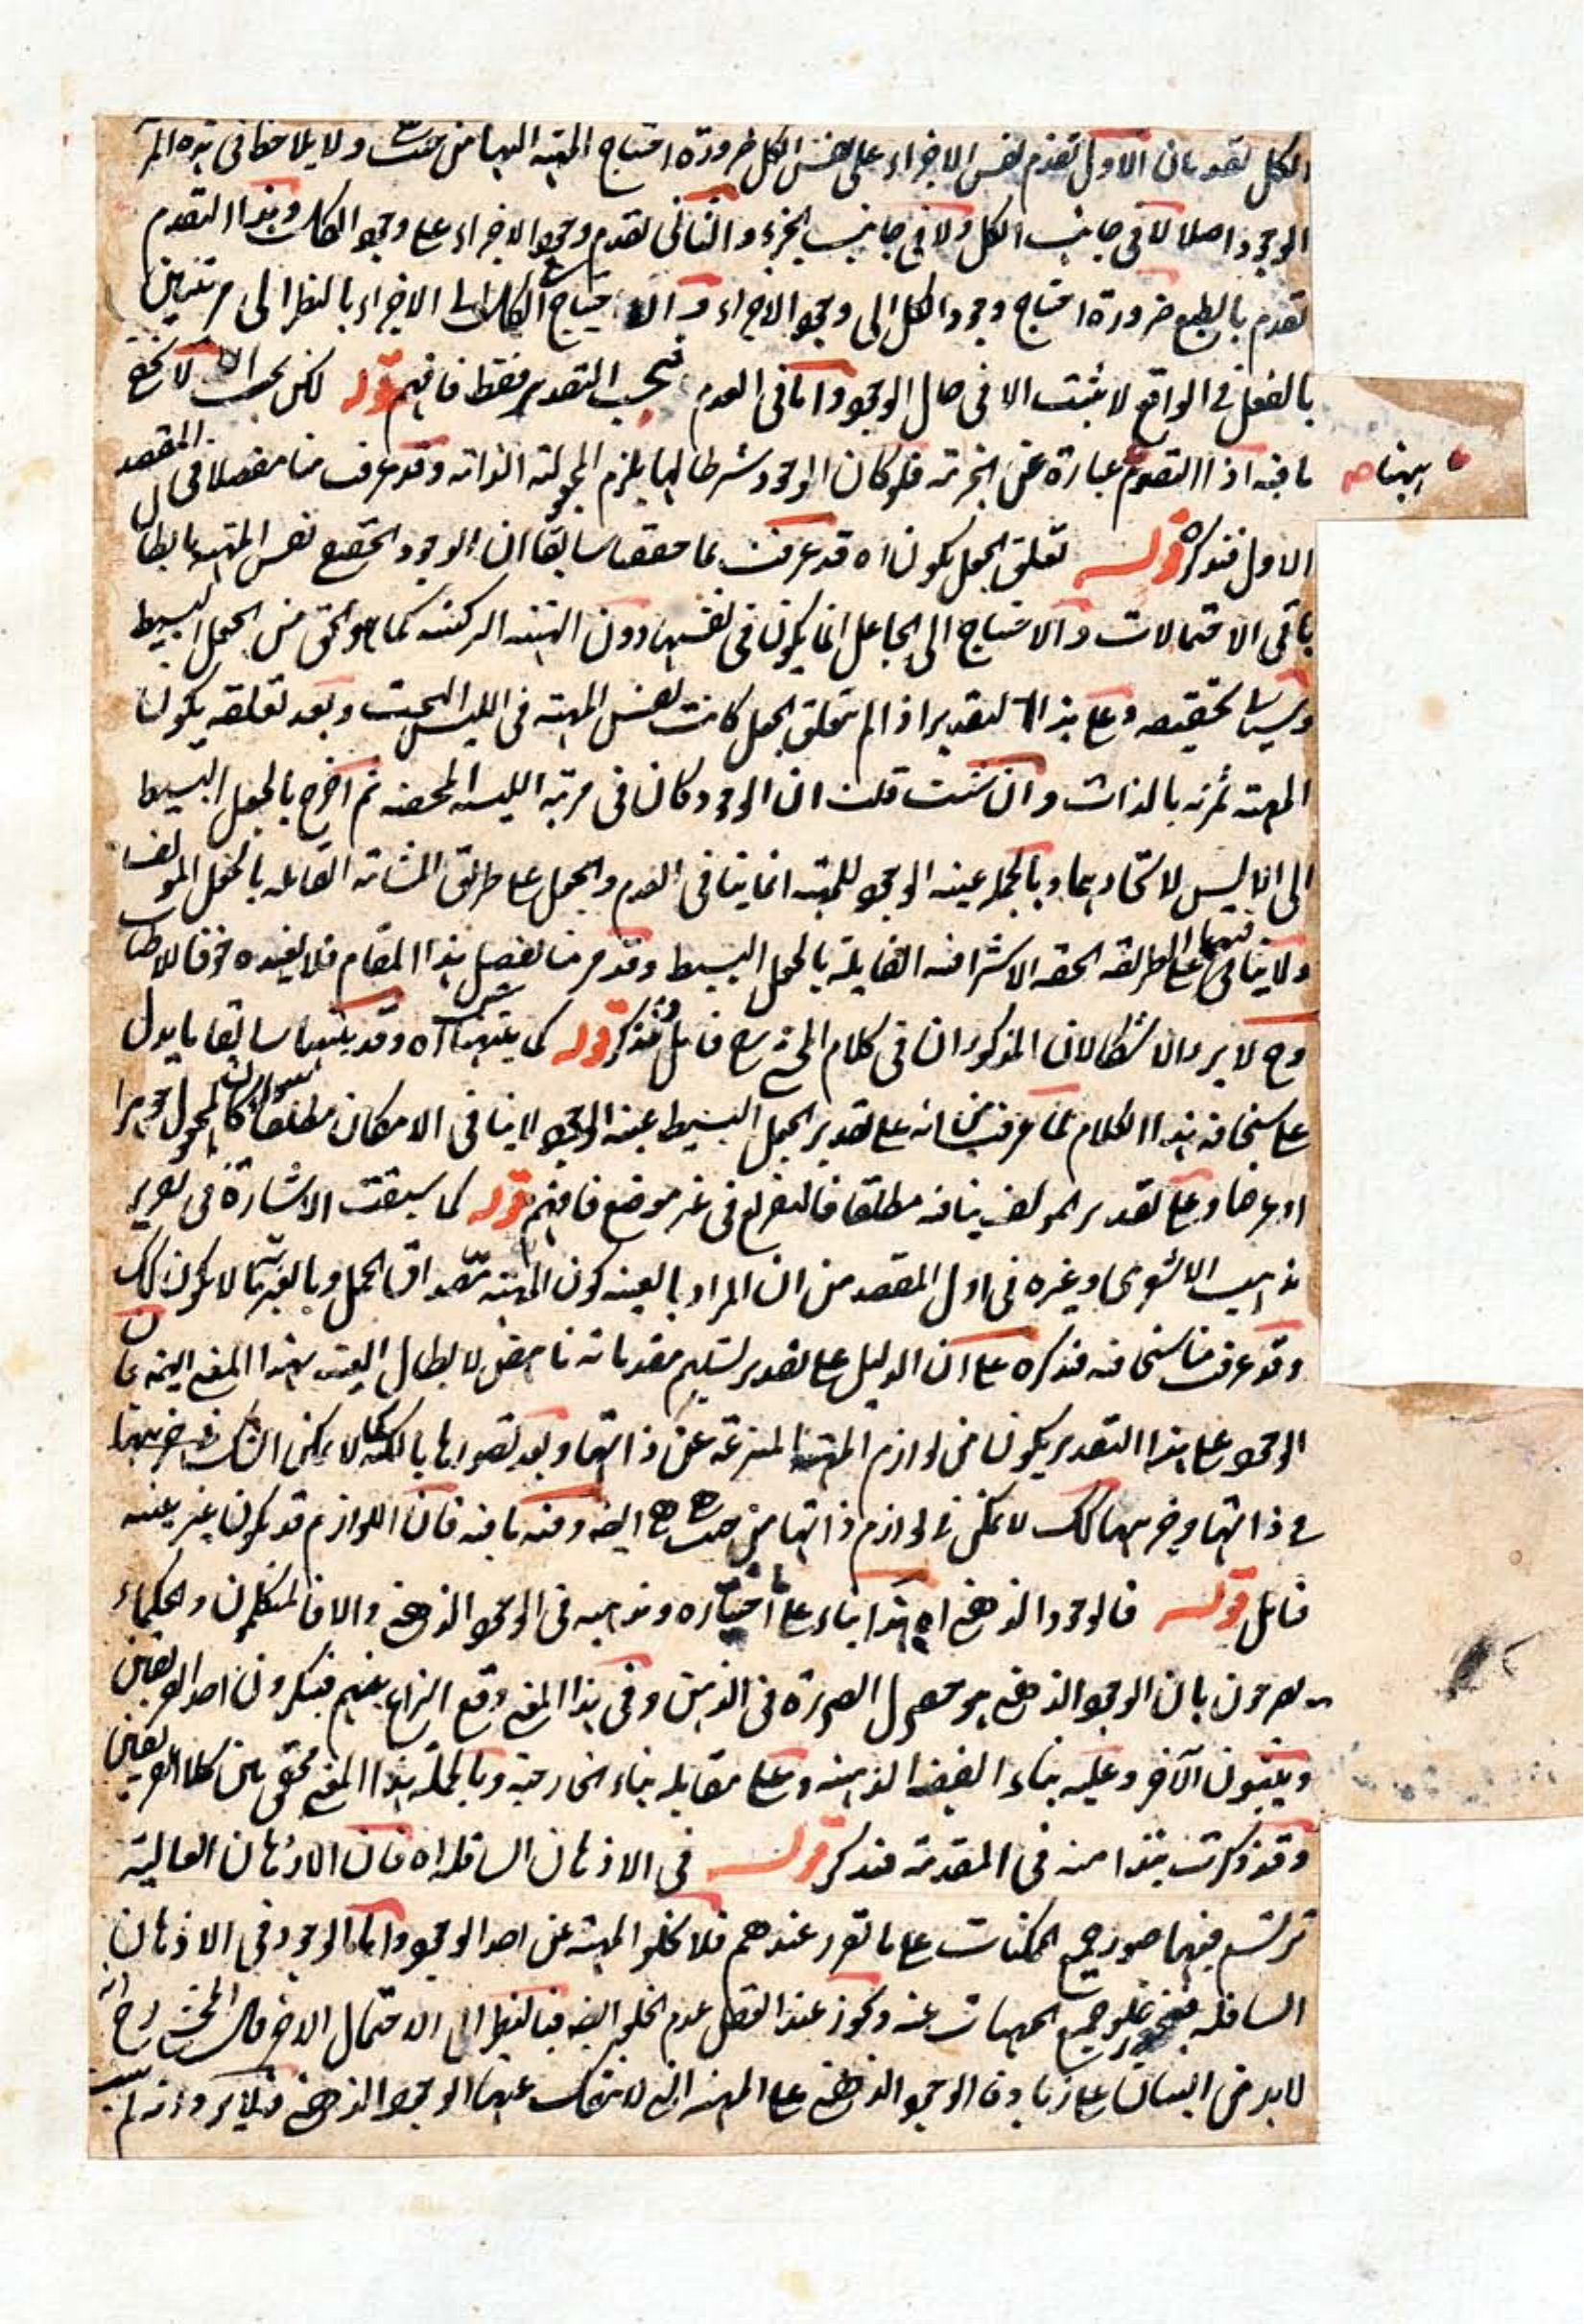 الكل تقدمان الاول تقدم نفس الاجزاء على نفس الكل ضرورة احتياج المهية اليها من حيث ولا يلاحظ فى هذه المر
الوجود اصلا لا فى جانب الكل ولا فى جانب الجزء والثانى تقدم وجود الاجزاء على وجود الكل وهذا التقدم
تقدم بالطبع ضرورة احتياج وجود الكل الى وجود الاجزاء احتياج الكل الى الاجزاء بالنظر الى مرتبتين
بالفعل فى الواقع لا يثبت الا فى حال الوجود واما فى العدم فبحسب التقدير فقط فافهم قوله لكن لا يخفى
ما فيه اذ التقوم عبارة عن الجزئية فلو كان الوجود شرطا لها يلزم المجعولية الذاتية وقد عرفت منا مفصلا فى المقصد
بينهما ص
الاول فتذكره قوله تعلق الجعل بكون اه قد عرفت مما حققنا سابقا ان الوجود الحقيقى نفس المهية بابطال
باقى الاحتمالات والاحتياج الى الجاعل انما يكون فى نفسها دون الهيئة التركيبية كما هو الحق من الجعل البسيط
وسياتى تحقيقه وعلى هذا التقدير اذا لم يتعلق الجعل كانت نفس المهية فى الليس البحت وبعد تعلقه يكون
المهية ثمرته بالذات وان شئت قلت ان الوجود كان فى مرتبة الليسية المحضة ثم اخرج بالجعل البسيط
الى الايس لاتحادهما وبالجملة عينية الوجود للمهية انما ينافى العدم والجعل على طريق المشائية القائلة بالجعل المولف
ولا ينافيهما على الطريقة الحقة الاشراقية القايلة بالجعل البسيط وقد مر منا تفصيل هذا المقام فلا نعيده خوفا للاطناب
وح لا يرد الاشكالان المذكوران فى كلام المحشى فتامل وتذكر قوله كما بينها اه وقد بينا سابقا ما يدل
على سخافة هذا الكلام مما عرفت من انه على تقدير الجعل البسيط عينية الوجود لا ينافى الامكان مطلقا سواء كان المجعول جوهرا
او عرضا وعلى تقدير المولف ينافيه مطلقا فالتفريع فى غير موضع فافهم قوله كما سبقت الاشارة فى تحرير
مذهب الاشعرى وغيره فى اول المقصد من ان المراد بالعينية كون المهية مصداق الحمل وبالغيرية ما لا يكون كذلك
وقد عرفت منا سخافته فتذكره على ان الدليل على تقدير تسليم مقدماته ناهض لابطال العينية بهذا المعنى ايضا فان
الوجود على هذا التقدير يكون من لوازم المهية المنتزعة عن ذاتها وبعد تصورها بالكنه كما لا يمكن الشك
فى ذاتها وجزئها كذلك لا يمكن فى لوازم ذاتها من حيث هى ايضا وفيه ما فيه فان اللوازم قد يكون غير بينة
فتامل قوله فالوجود الذهنى اه هذا بناء على اختياره ومذهبه فى الوجود الذهنى والا فالمتكلمون والحكماء
يصرحون بان الوجود الذهنى هو حصول الصورة فى الذهن وفى هذا المعنى وقع النزاع بينهم فينكرون احد الفريقين
ويثبتون الآخر وعليه بناء القضية الذهنية وعلى مقابله بناء الخارجية وبالجملة هذا المعنى محقق بين كلا الفريقين
وقد ذكرت نبذا منه فى المقدمة فتذكر قوله فى الاذهان السافلة اه فان الاذهان العالية
ترتسم فيها صور جميع الممكنات على ما تقرر عندهم فلا يخلو المهية عن احد الوجود واما الوجود فى الاذهان
السافلة فيجوز خلو جميع المهيات عنه ويجوز عند العقل عدم الخلو ايضا فبالنظر الى الاحتمال الاخر قال المحشى رح انه
لا بد من البيان على زيادة الوجود الذهنى على المهية التى لا ينفك عنها الوجود الذهنى فلا يرد انه لم